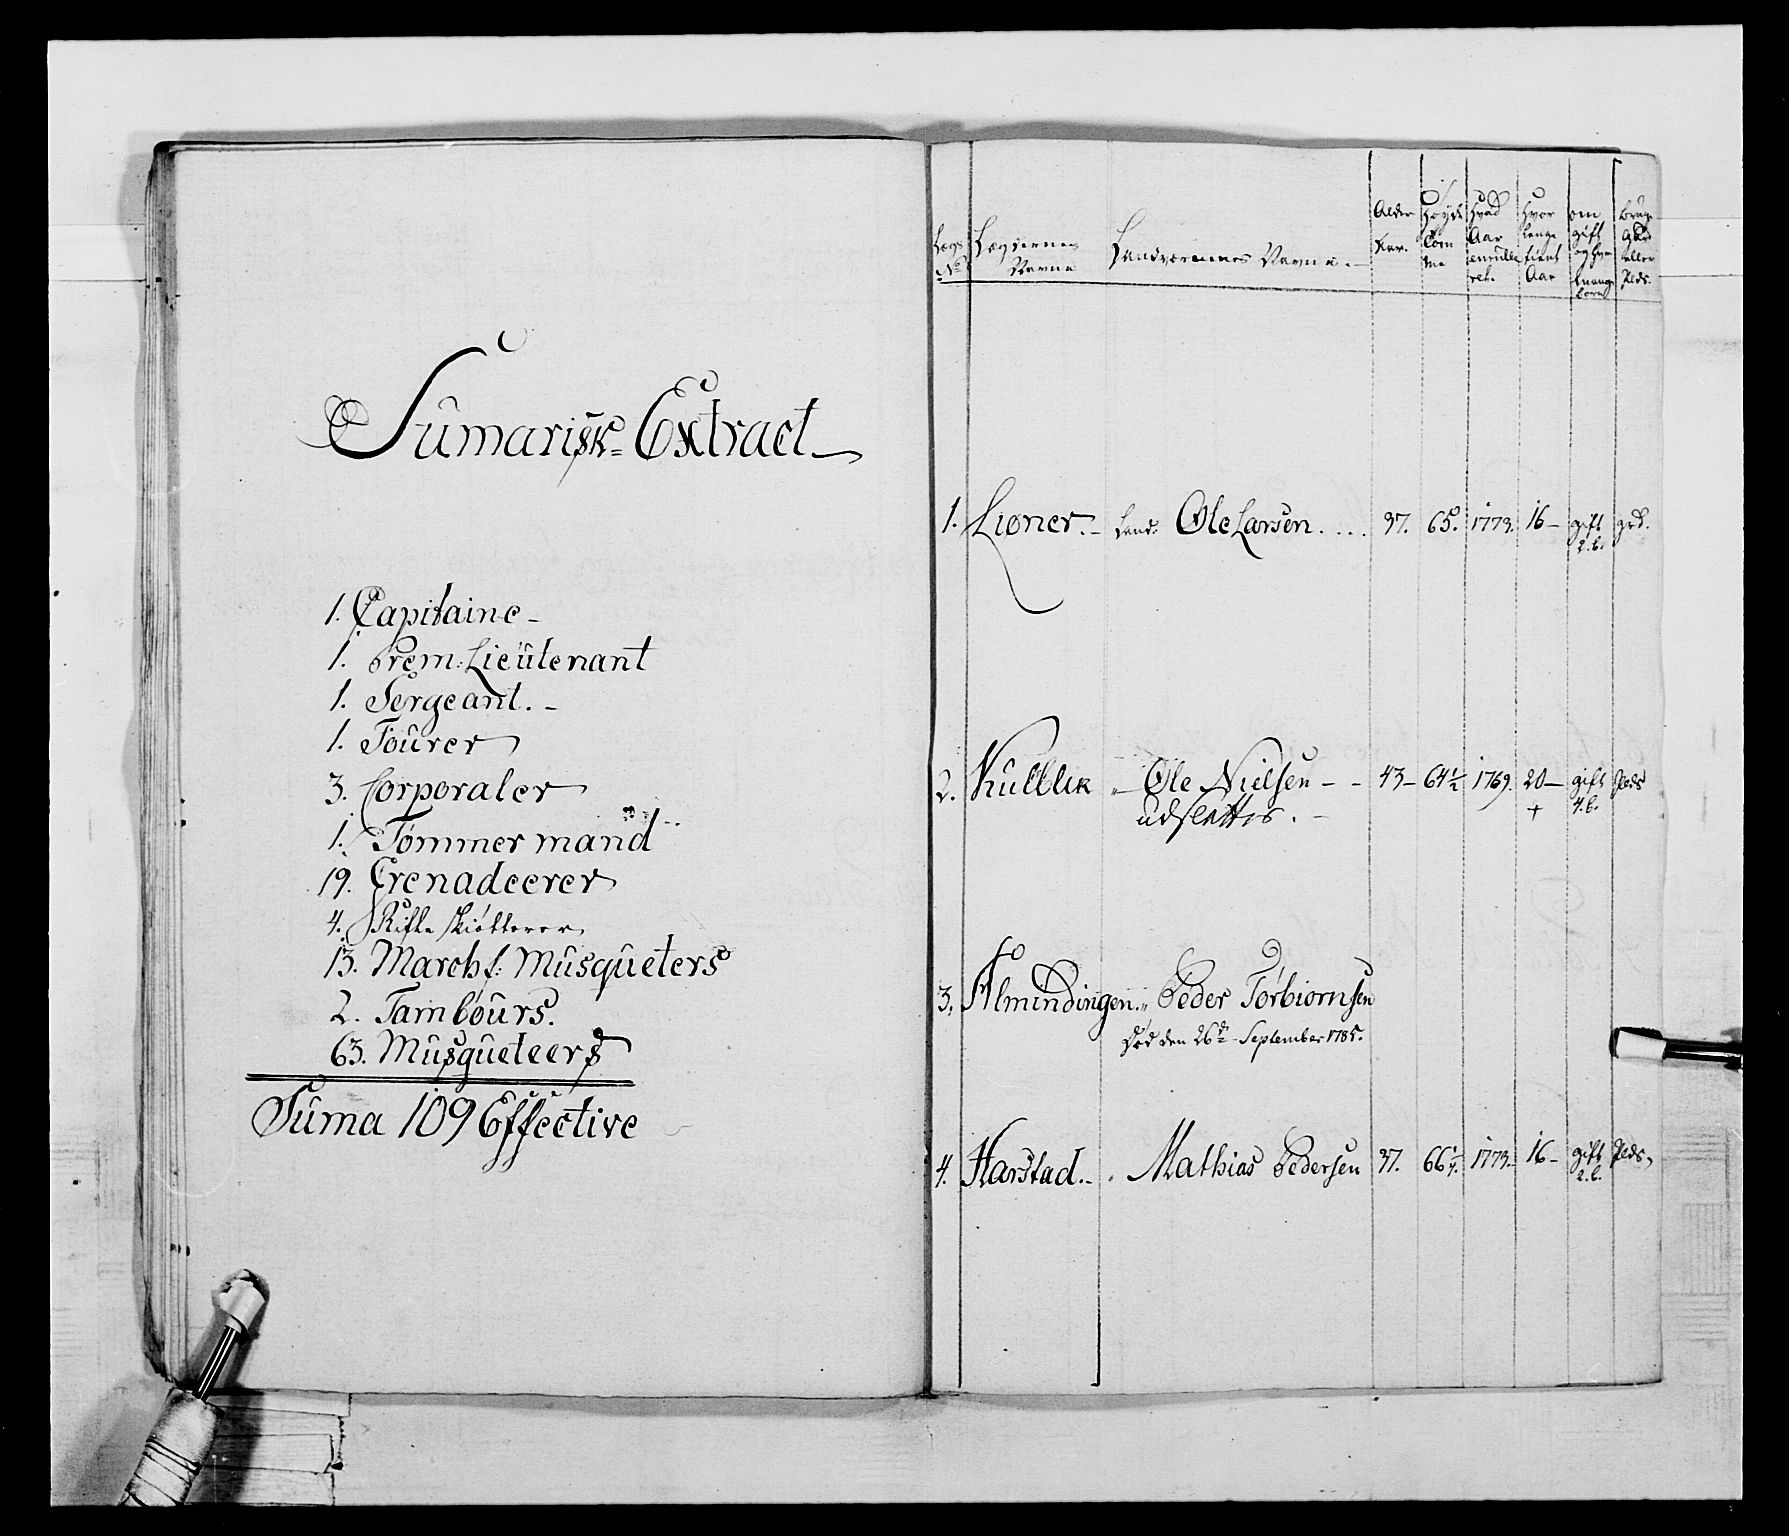 Sumarisk = Extract
1. Capitaine -
1. Prem: Lieutenant
1. Sergeant. -
1. Fourer
3. Corporaler
1. Tømmermand
19. Grenadeerer
4. Rifle skiøtterer
13. March f: Musqueters
2. Tambours.
63. Musqueteers
Suma 109 Effective
Lægs No Lægdernes Navne Landværnnes Navne. Alder Aar. Høyde Tom me Hvad Aar enroulle ret. Hvor lenge tient Aar om gift og hvor mange børn
1. Lioner. - Land: Ole Larsen. . . . 37. 65. 1773. 16 - gift grd.
2. b.
2. Kulblik „ Ole Nielsen - - 43 - 64½ 1769. 20 - gift Plds
udslettes. - + 4. b.
3. Almindingen. „ Peder Torbiornsen
død den 26de September 1785.
4. Harstad. - „ Mathias Pedersen 37. 66¼. 1773. 16 - gift Plds,
2. b.